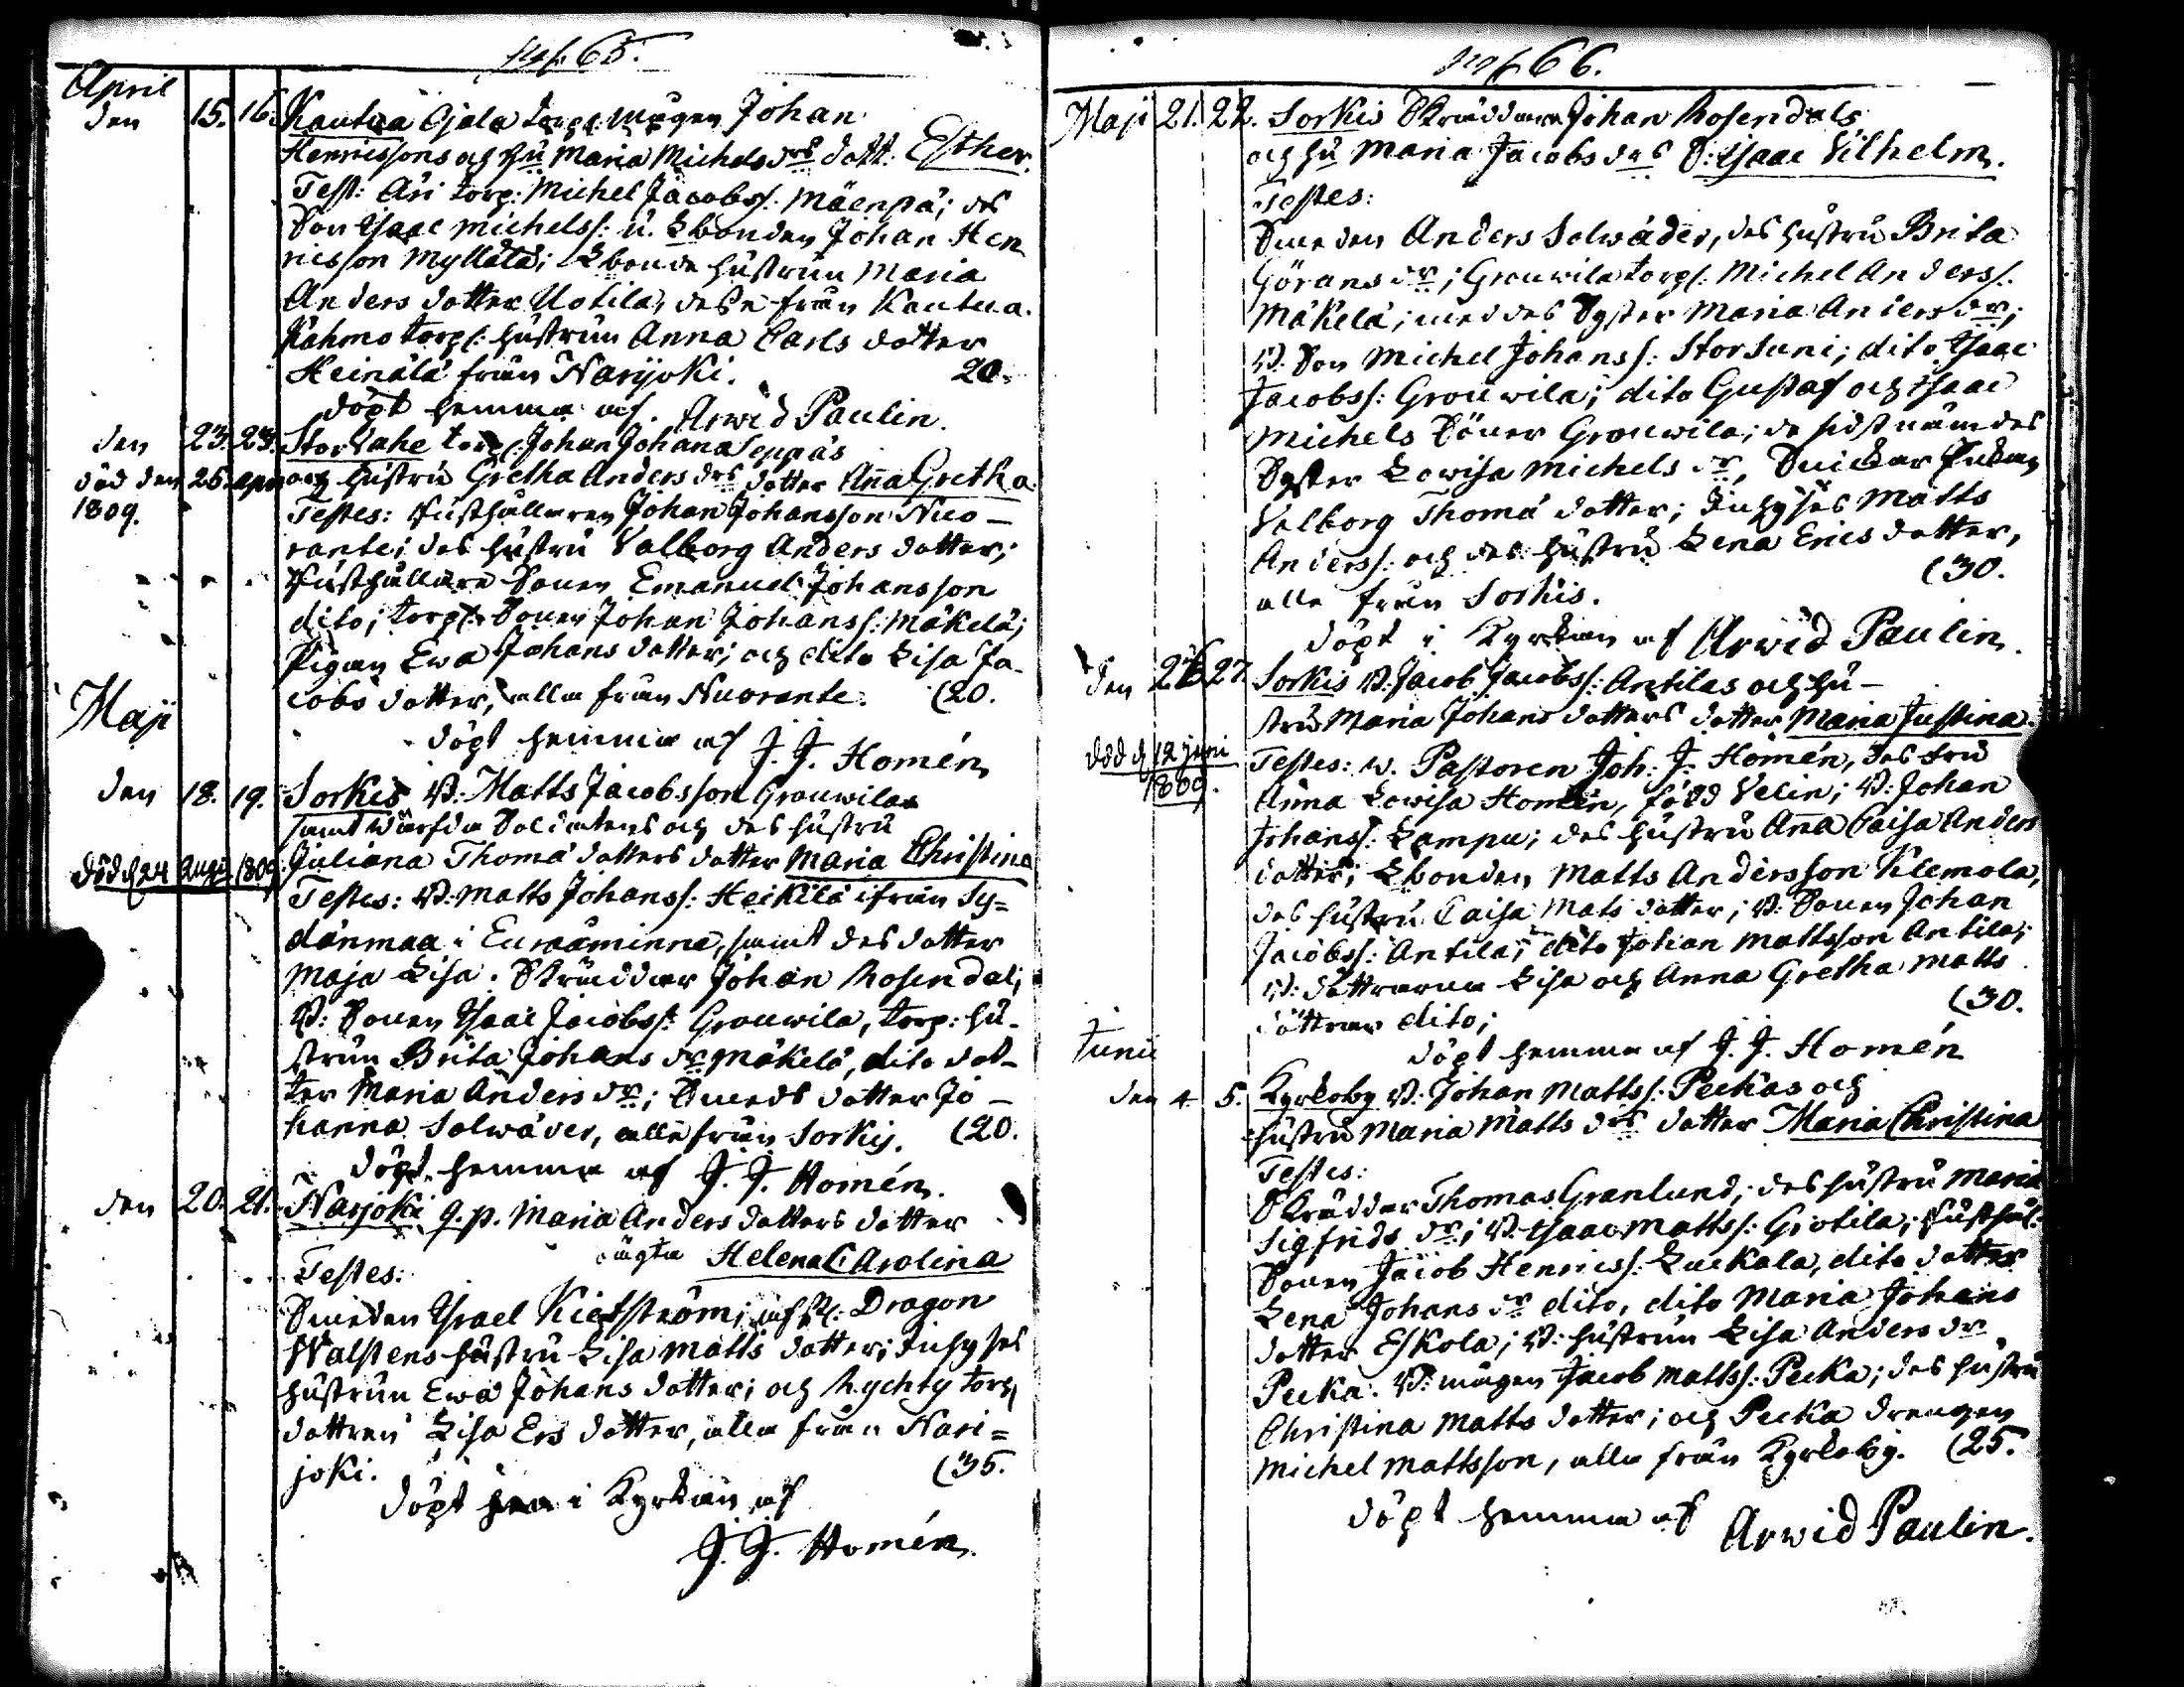 65.
April
den 15. 16. Kautua Ojala torp: mågen Johan
Henricssons och hu Maria Michelsdrs dott: Esther.
Test: Äri torp: Michel Jacobss: Mäenpä; des
Son Isaac Michelss: u. Lbonden Johan Hen
ricsson Myllätä; Lbonde hustrun Maria
Anders dotter Uotila, desse från Kautua.
torp: hustrun Anna Carls dotter
Heinälä från Narijoki. 20.
döpt hemma af. Arwid Paulin.
den 23. 23. Storlahe torp: Johan Johans Seppäs
död den 26. apr. och hustru Gretha Anders drs dotter Anna Gretha
1809. Testes: Rusthållaren Johan Johansson Nuo-
rante; des hustru Valborg Anders dotter;
Rusthållare Sonen Emanuel Johansson
dito; torp: Sonen Johan Johanss: Mäkelä;
Pigan Ewa Johans dotter; och dito Lisa Ja-
cobs dotter, alla från Nuorante. (20.
Maji
döpt hemma af J. J. Homén
den 18. 19. Sorkis B: Matts Jacobsson Grouwilas
samt Soldatens och des hustru
död d 24 Augu. 1809 Juliana Thomä dotters dotter Maria Christina
Testes: B: Matts Johanss: Heikilä ifrån Sy=
dänmaa i Euraåminne, samt des dotter
Maja Lisa. Skräddar Johan Rosendal;
B: Sonen Isaac Jacobss: Grouwila, torp: hu-
strun Brita Johans dr Mäkelä, dito dot-
ter Maria Anders dr; Smeds dotter Jo-
hanna Solwäder, alla från Sorkis. (20.
döpt hemma af J. J. Homén.
den 20. 21. Narjoki q. p. Maria Anders dotters dotter
oägta Helena Carolina
Testes:
Smeden Israel Kiellström; afsk: Dragon
Walstens hustru Lisa Matts dotter; Inhyses
hustrun Ewa Johans dotter; och Rychty torp
dottren Lisa Ers dotter, alla från Nari=
joki. (35.
döpt i Kyrkian af
J. J. Homén.
66.
Maji 21. 22. Sorkis Skräddaren Johan Rosendals
och hu Maria Jacobs drs S: Isaac Vilhelm.
Testes:
Smeden Anders Solwäder, des hustru Brita
Görans dr; Grouwila torp: Michel Anderss:
Mäkelä; med des Syster Maria Anders dr;
B: Son Michel Johanss: Storsuni; dito Isaac
Jacobss: Grouwila; dito Gustaf och Isaac
Michels Söner Grouwila; de sidstnämdes
Syster Lowisa Michels dr, Snickar Enkan
Valborg Thomä dotter; Inhyses Matts
Anderss: och des hustru Lena Erics dotter,
alla från Sorkis. (30.
döpt i Kyrkan af Arwid Paulin.
den 26 27. Sorkis B: Jacob Jacobss: Antilas och hu-
stru Maria Johans dotters dotter Maria Justina.
död d 12 juni Testes: v. Pastoren Joh. J. Homén, des fru
1809. Anna Lowisa Homén, född Velin; B: Johan
Johanss: Lampu; des hustru Anna Caisa Anders
dotter; Lbonden Matts Andersson Klemola,
des hustru Caisa Mats dotter; B: Sonen Johan
Jacobss: Antila; dito Johan Mattsson Antila;
B: döttrarna Lisa och Anna Gretha Matts
döttrar dito; (30.
Junii
döpt hemma af J. J. Homén
den 4 5. Kyrkoby B: Johan Mattss: Peckas och
hustru Maria Matts drs dotter Maria Christina
Testes:
Skräddar Thomas Granlund, des hustru Maria
Sigfrids dr; B: Isaac Mattss: Giotila; Rusthål:
Sonen Jacob Henricss: Luckala, dito dotter
Lena Johans dr dito, dito Maria Johans
dotter Eskola; B: hustrun Lisa Anders dr
Pecka. B: mågen Jacob Mattss: Pecka; des hustru
Christina Matts dotter; och Pecka drengen
Michel Mattsson, alla från Kyrkoby. (25.
döpt hemma af Arwid Paulin.